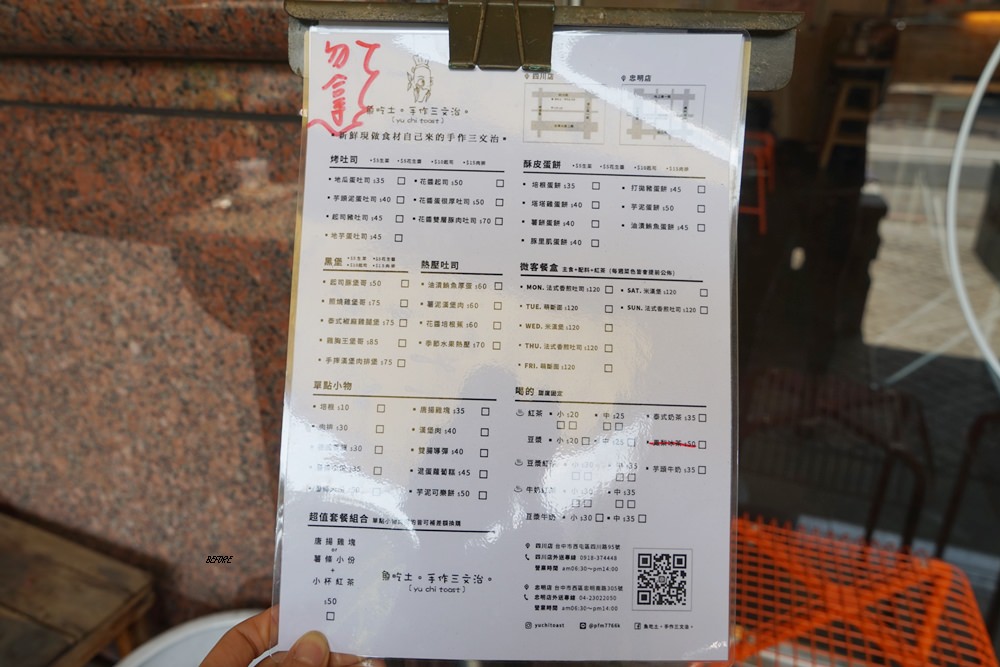 勿合手
四川店
忠明店
魚吃土。手作三文治。
(yu chi toast)
新鮮現做食材自己來的手作三文治
烤吐司 +$5生菜 +$5花生醬 +$10起司 +$15肉排
地瓜蛋吐司 $35
花醬起司 $50
芋頭泥蛋吐司 $40
花醬蛋很厚吐司 $50
起司豬吐司 $45
花醬雙層豚肉吐司 $70
地芋蛋吐司 $45
酥皮蛋餅 +$5生菜 +$5花生醬 +$10起司 +$15肉排
培根蛋餅 $35
打拋豬蛋餅 $45
塔塔雞蛋餅 $40
芋泥蛋餅 $50
薯餅蛋餅 $40
油漬鮪魚蛋餅 $45
豚里肌蛋餅 $40
黑堡 +$5生菜 +$5花生醬 +$10起司 +$15肉排
起司豚堡哥 $50
照燒雞堡哥 $75
泰式椒麻雞腿堡 $75
雞胸王堡哥 $85
手捍漢堡肉排堡 $75
熱壓吐司
油漬鮪魚厚蛋 $60
薯泥漢堡肉 $60
花醬培根蕉 $60
季節水果熱壓 $70
微客餐盒 主食+配料+紅茶 (每週菜色皆會提前公佈)
MON. 法式香煎吐司 $120
SAT. 米漢堡 $120
TUE. 萌斷面 $120
SUN. 法式香煎吐司 $120
WED. 米漢堡 $120
THU. 法式香煎吐司 $120
FRI. 萌斷面 $120
單點小物
培根 $10
唐揚雞塊 $35
肉排 $30
漢堡肉 $40
$30
雙腸導彈 $40
混蛋蘿蔔糕 $45
芋泥可樂餅 $50
喝的 甜度固定
紅茶 小 $20 中 $25
泰式奶茶 $35
豆漿 小 $20 中 $25
$50
豆漿紅茶 中 $35
芋頭牛奶 $35
牛奶紅茶 中 $35
豆漿牛奶 小 $30 中 $35
超值套餐組合
唐揚雞塊
or
薯條小份
+
小杯紅茶
$50
魚吃土。手作三文治。
(yu chi toast)
四川店 台中市西屯區四川路95號
四川店外送專線 0918-374448
營業時間 am06:30～pm14:00
忠明店 台中市西區忠明南路305號
忠明店外送專線 04-23022050
營業時間 am06:30～pm14:00
yuchitoast
@pfm7766k
魚吃土。手作三文治。
BEFORE